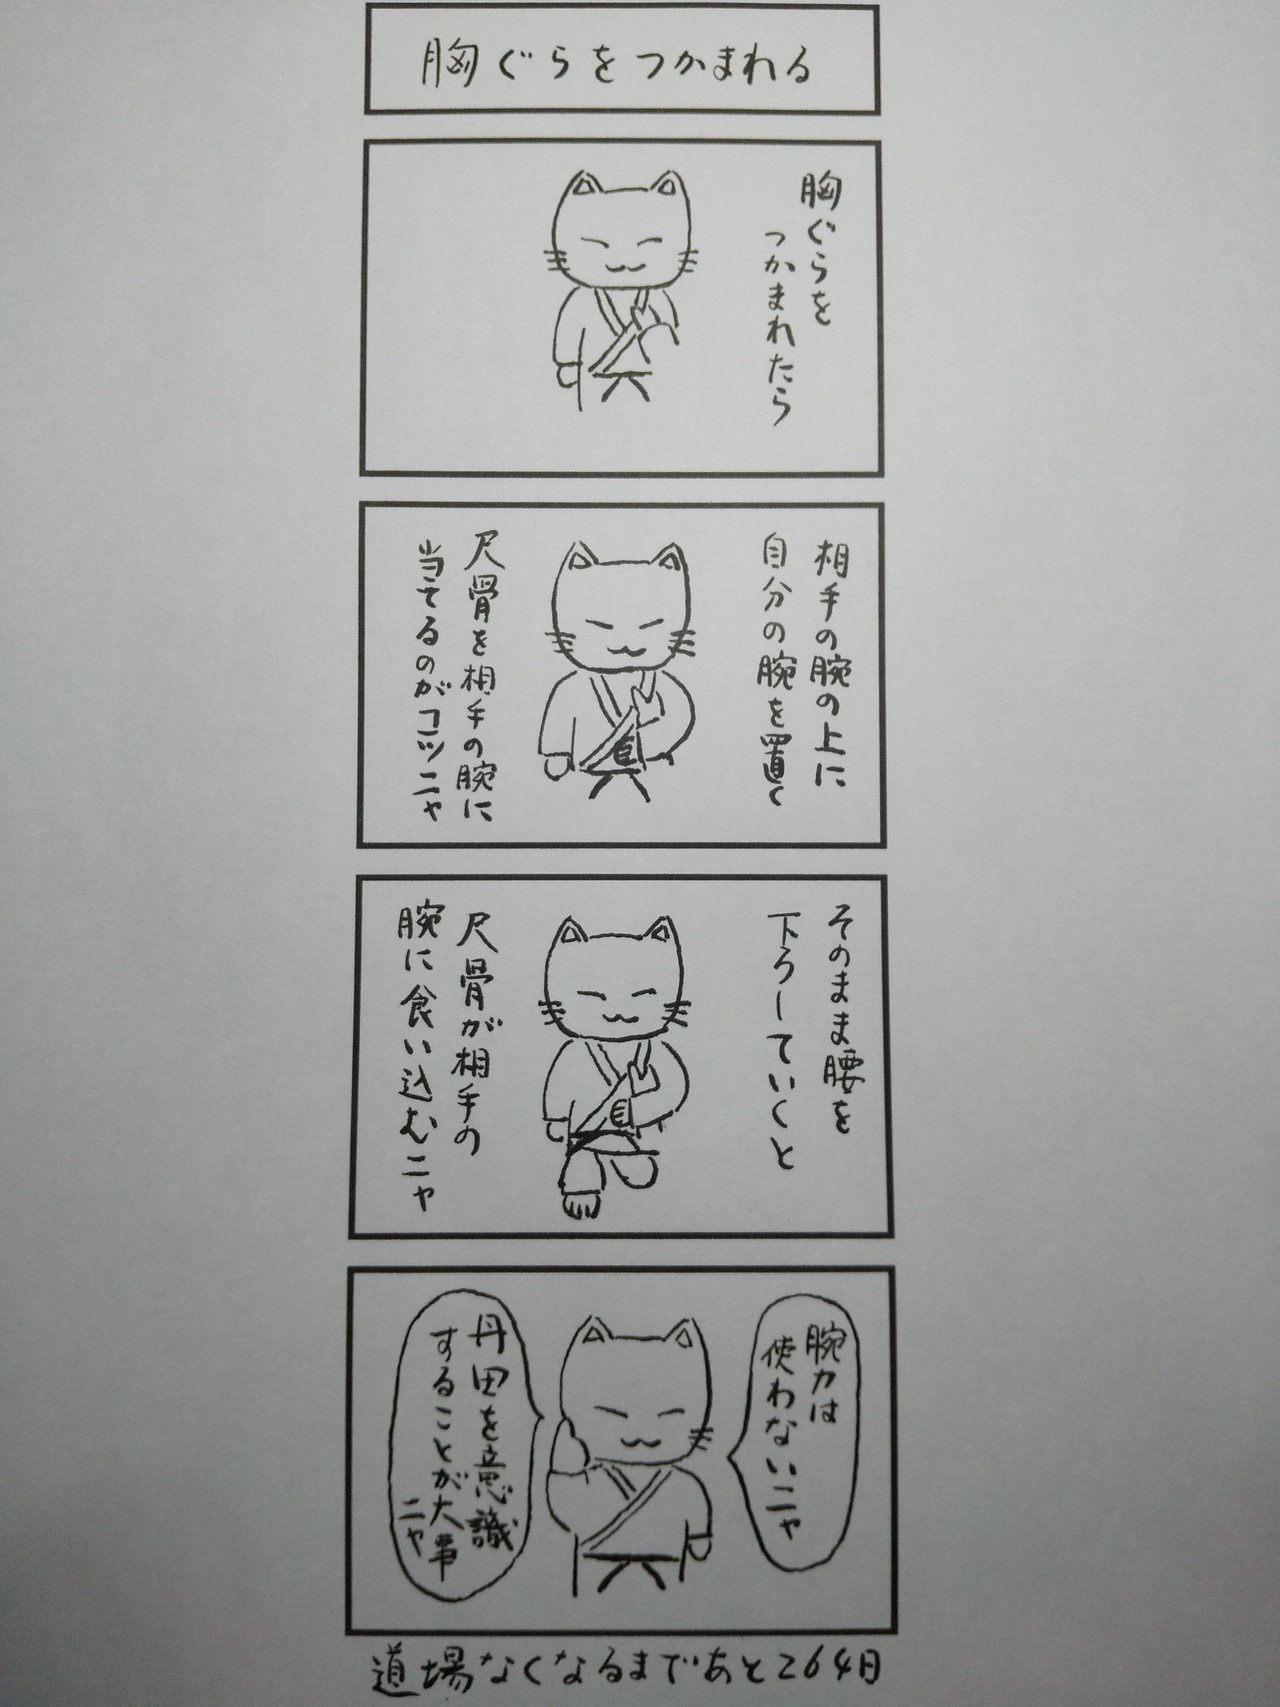 胸ぐらをつかまれる
胸ぐらを
つかまれたら
相手の腕の上に
自分の腕を置く
尺骨を相手の腕に
当てるのがコツニャ
そのまま腰を
下ろしていくと
尺骨が相手の
腕に食い込むニャ
腕力は
使わないニャ
丹田を意識
することが大事
ニャ
道場なくなるまであと264日